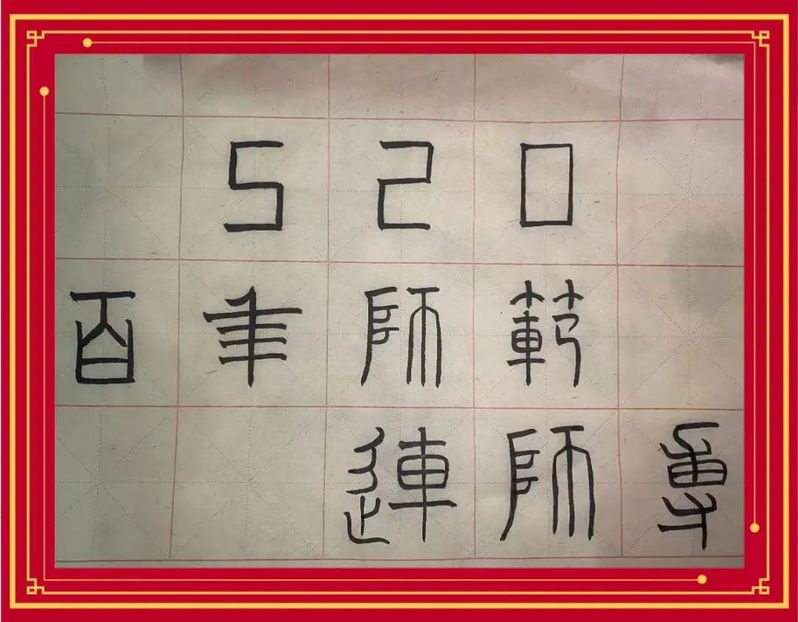 520
百年師範
連師專